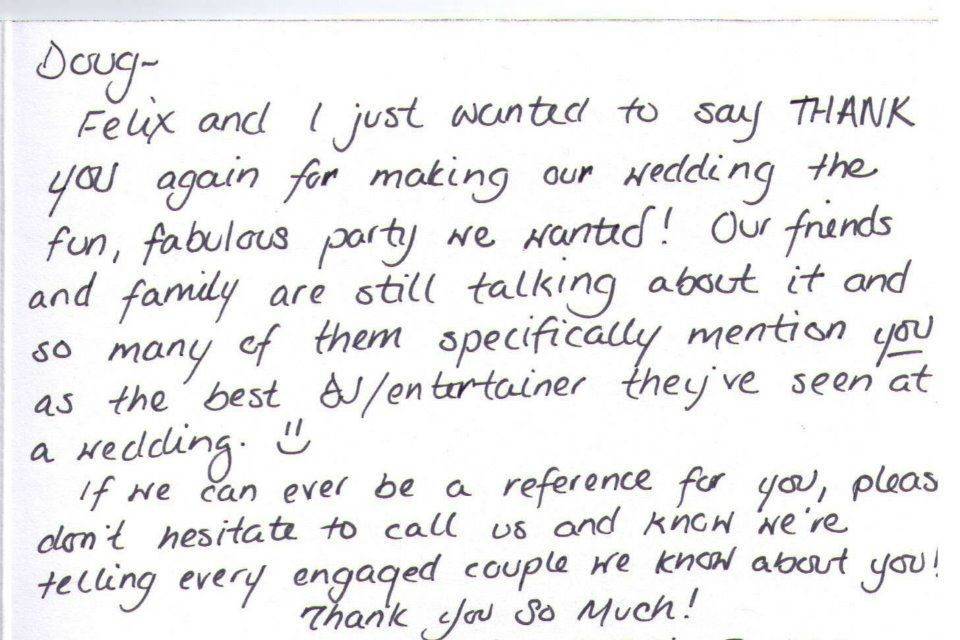 Doug~
Felix and I just wanted to say THANK
YOU again for making our wedding the
fun, fabulous party we wanted! Our friends
and family are still talking about it and
so many of them specifically mention you
as the best DJ/entertainer they've seen at
a wedding.
If we can ever be a reference for you, pleas
don't hesitate to call us and know we're
telling every engaged couple we know about you!
Thank you so Much!